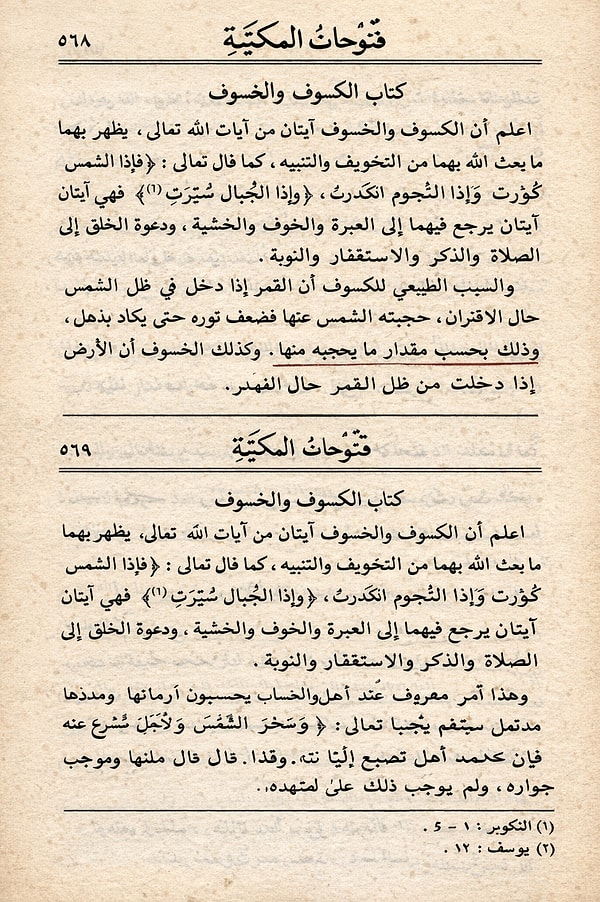 ٥٦٨ فتوحات المكتبة
كتاب الكسوف والخسوف
اعلم أن الكسوف والخسوف آيتان من آيات الله تعالى، يظهر بهما
ما يعث الله بهما من التخويف والتنبيه، كما فال تعالى: ﴿فاذا الشمس
كوُرت وَإذا النُجوم انكَدرتْ، ﴿وإذا الجُبال سُيّرَتِ (٦)﴾ فهي آيتان
آيتان يرجع فيهما إلى العبرة والخوف والخشية، ودعوة الخلق إلى
الصلاة والذكر والاستقفار والنوبة.
والسبب الطبيعي للكسوف أن القمر إذا دخل في ظل الشمس
حال الاقتران، حجبته الشمس عنها فضعف توره حتى يكاد بذهل،
وذلك بحسب مقدار ما يحجبه منها. وكذلك الخسوف أن الأرض
إذا دخلت من ظل القمر حال الفهدر.
٥٦٩ فتوحات المكتبة
كتاب الكسوف والخسوف
اعلم أن الكسوف والخسوف آيتان من آيات الله تعالى، يظهر بهما
ما بعث الله بهما من التخويف والتنبيه، كما فال تعالى: ﴿فإذا الشمس
كوُرت وَإذا النُجوم انكَدرتْ، ﴿وإذا الجُبال سُيّرَتِ (٦)﴾ فهي آيتان
آيتان يرجع فيهما إلى العبرة والخوف والخشية، ودعوة الخلق إلى
الصلاة والذكر والاستقفار والنوبة.
وهذا آمر معروف عند أهل والخساب يحسبون أرمانها ومدذها
مدتمل تعالى: ﴿ وَسَخرَ الشَّمْسَ
فإن أهل تصبع وقذا. قال قال ملنها وموجب
جواره، ولم يوجب ذلك على لمتهده.
(١) التكوير: ١ – 5.
(٢) يوسف: ١٢.